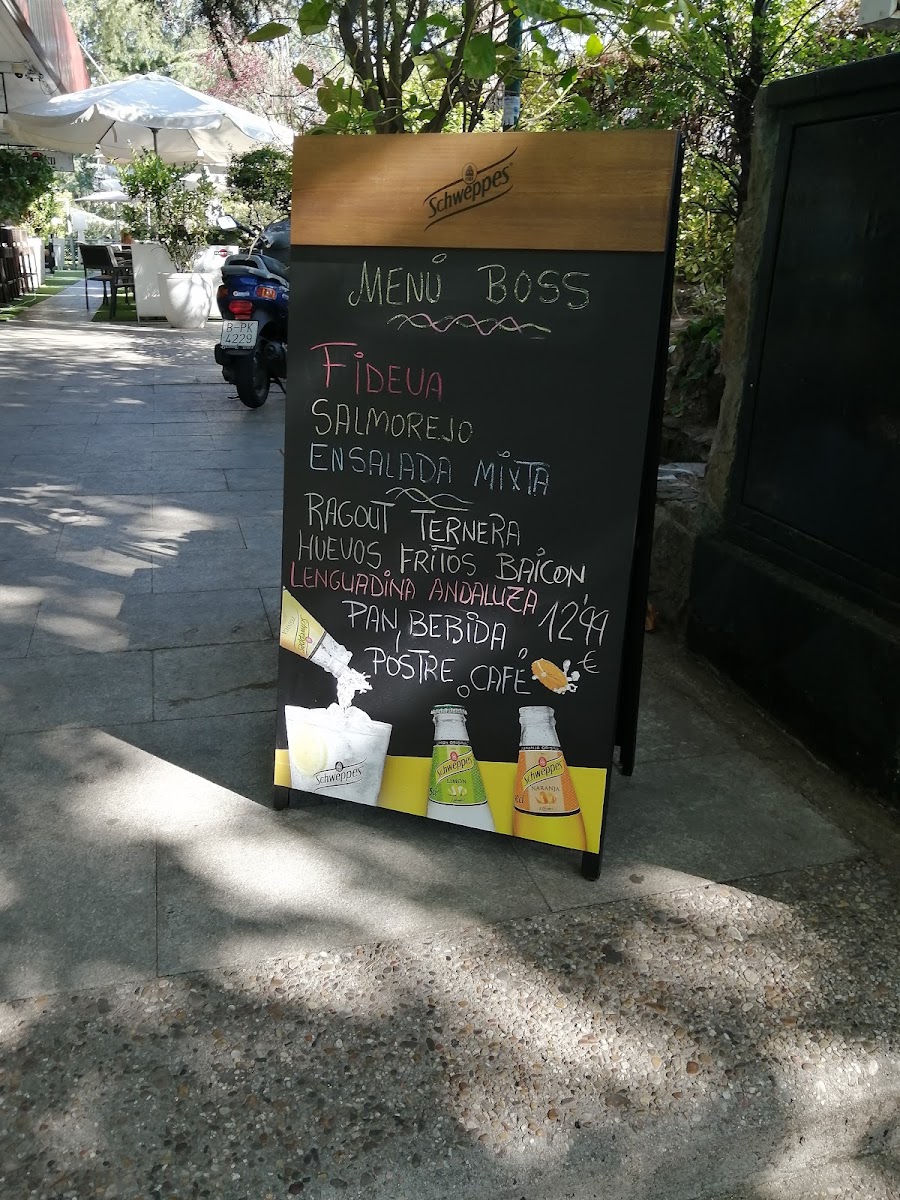 Schweppes
MENÚ BOSS
FIDEUA
SALMOREJO
ENSALADA MIXTA
RAGOUT TERNERA
HUEVOS FRITOS BAICON
LENGUADINA ANDALUZA
PAN, BEBIDA 12'99
POSTRE o CAFÉ €
Schweppes
Schweppes
LIMÓN
Schweppes
NARANJA
B-PK
4229